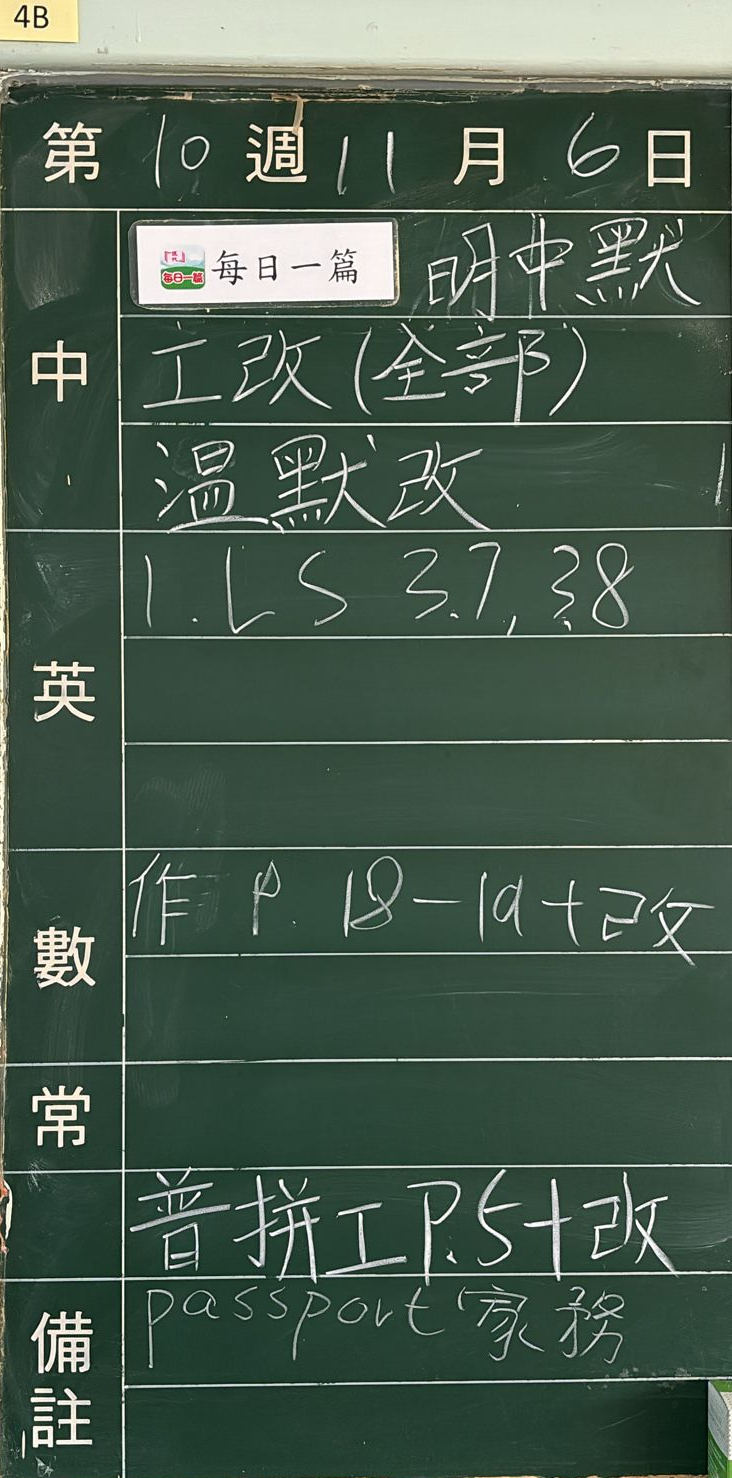 4B
第 10 週 11 月 6 日
中
每日一篇 每日一篇 明中默
工改(全部)
温默改
英
1. LS 3.7, 3.8
數
作 P. 18-19+改
常
普拼工P.5+改
備註
passport 家務